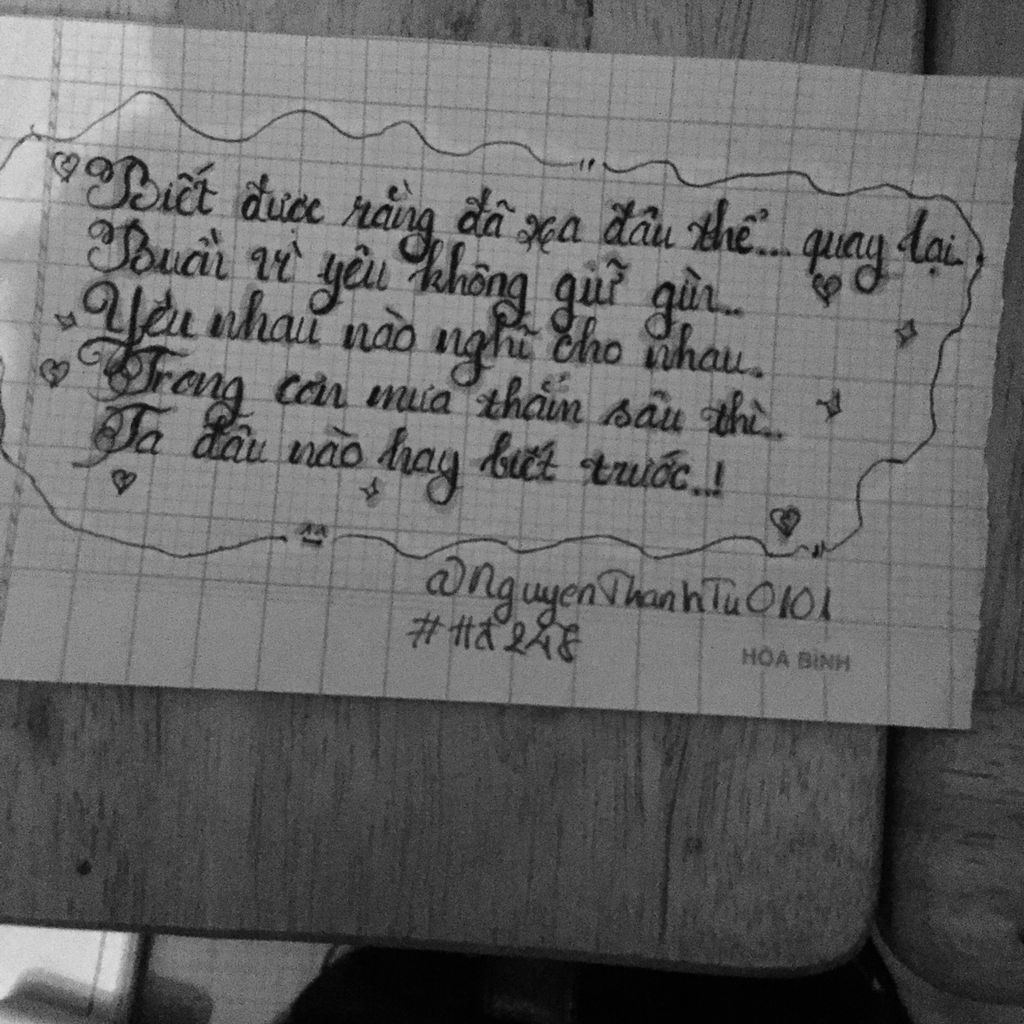 Biết được rằng đã xa đâu thể... quay lại.
Buồn vì yêu không giữ gìn..
Yêu nhau nào nghĩ cho nhau.
Trong cơn mưa thấm sâu thì..
Ta đâu nào hay biết trước..!
@NguyenThanhTu0101
#HĐ248
HÒA BÌNH